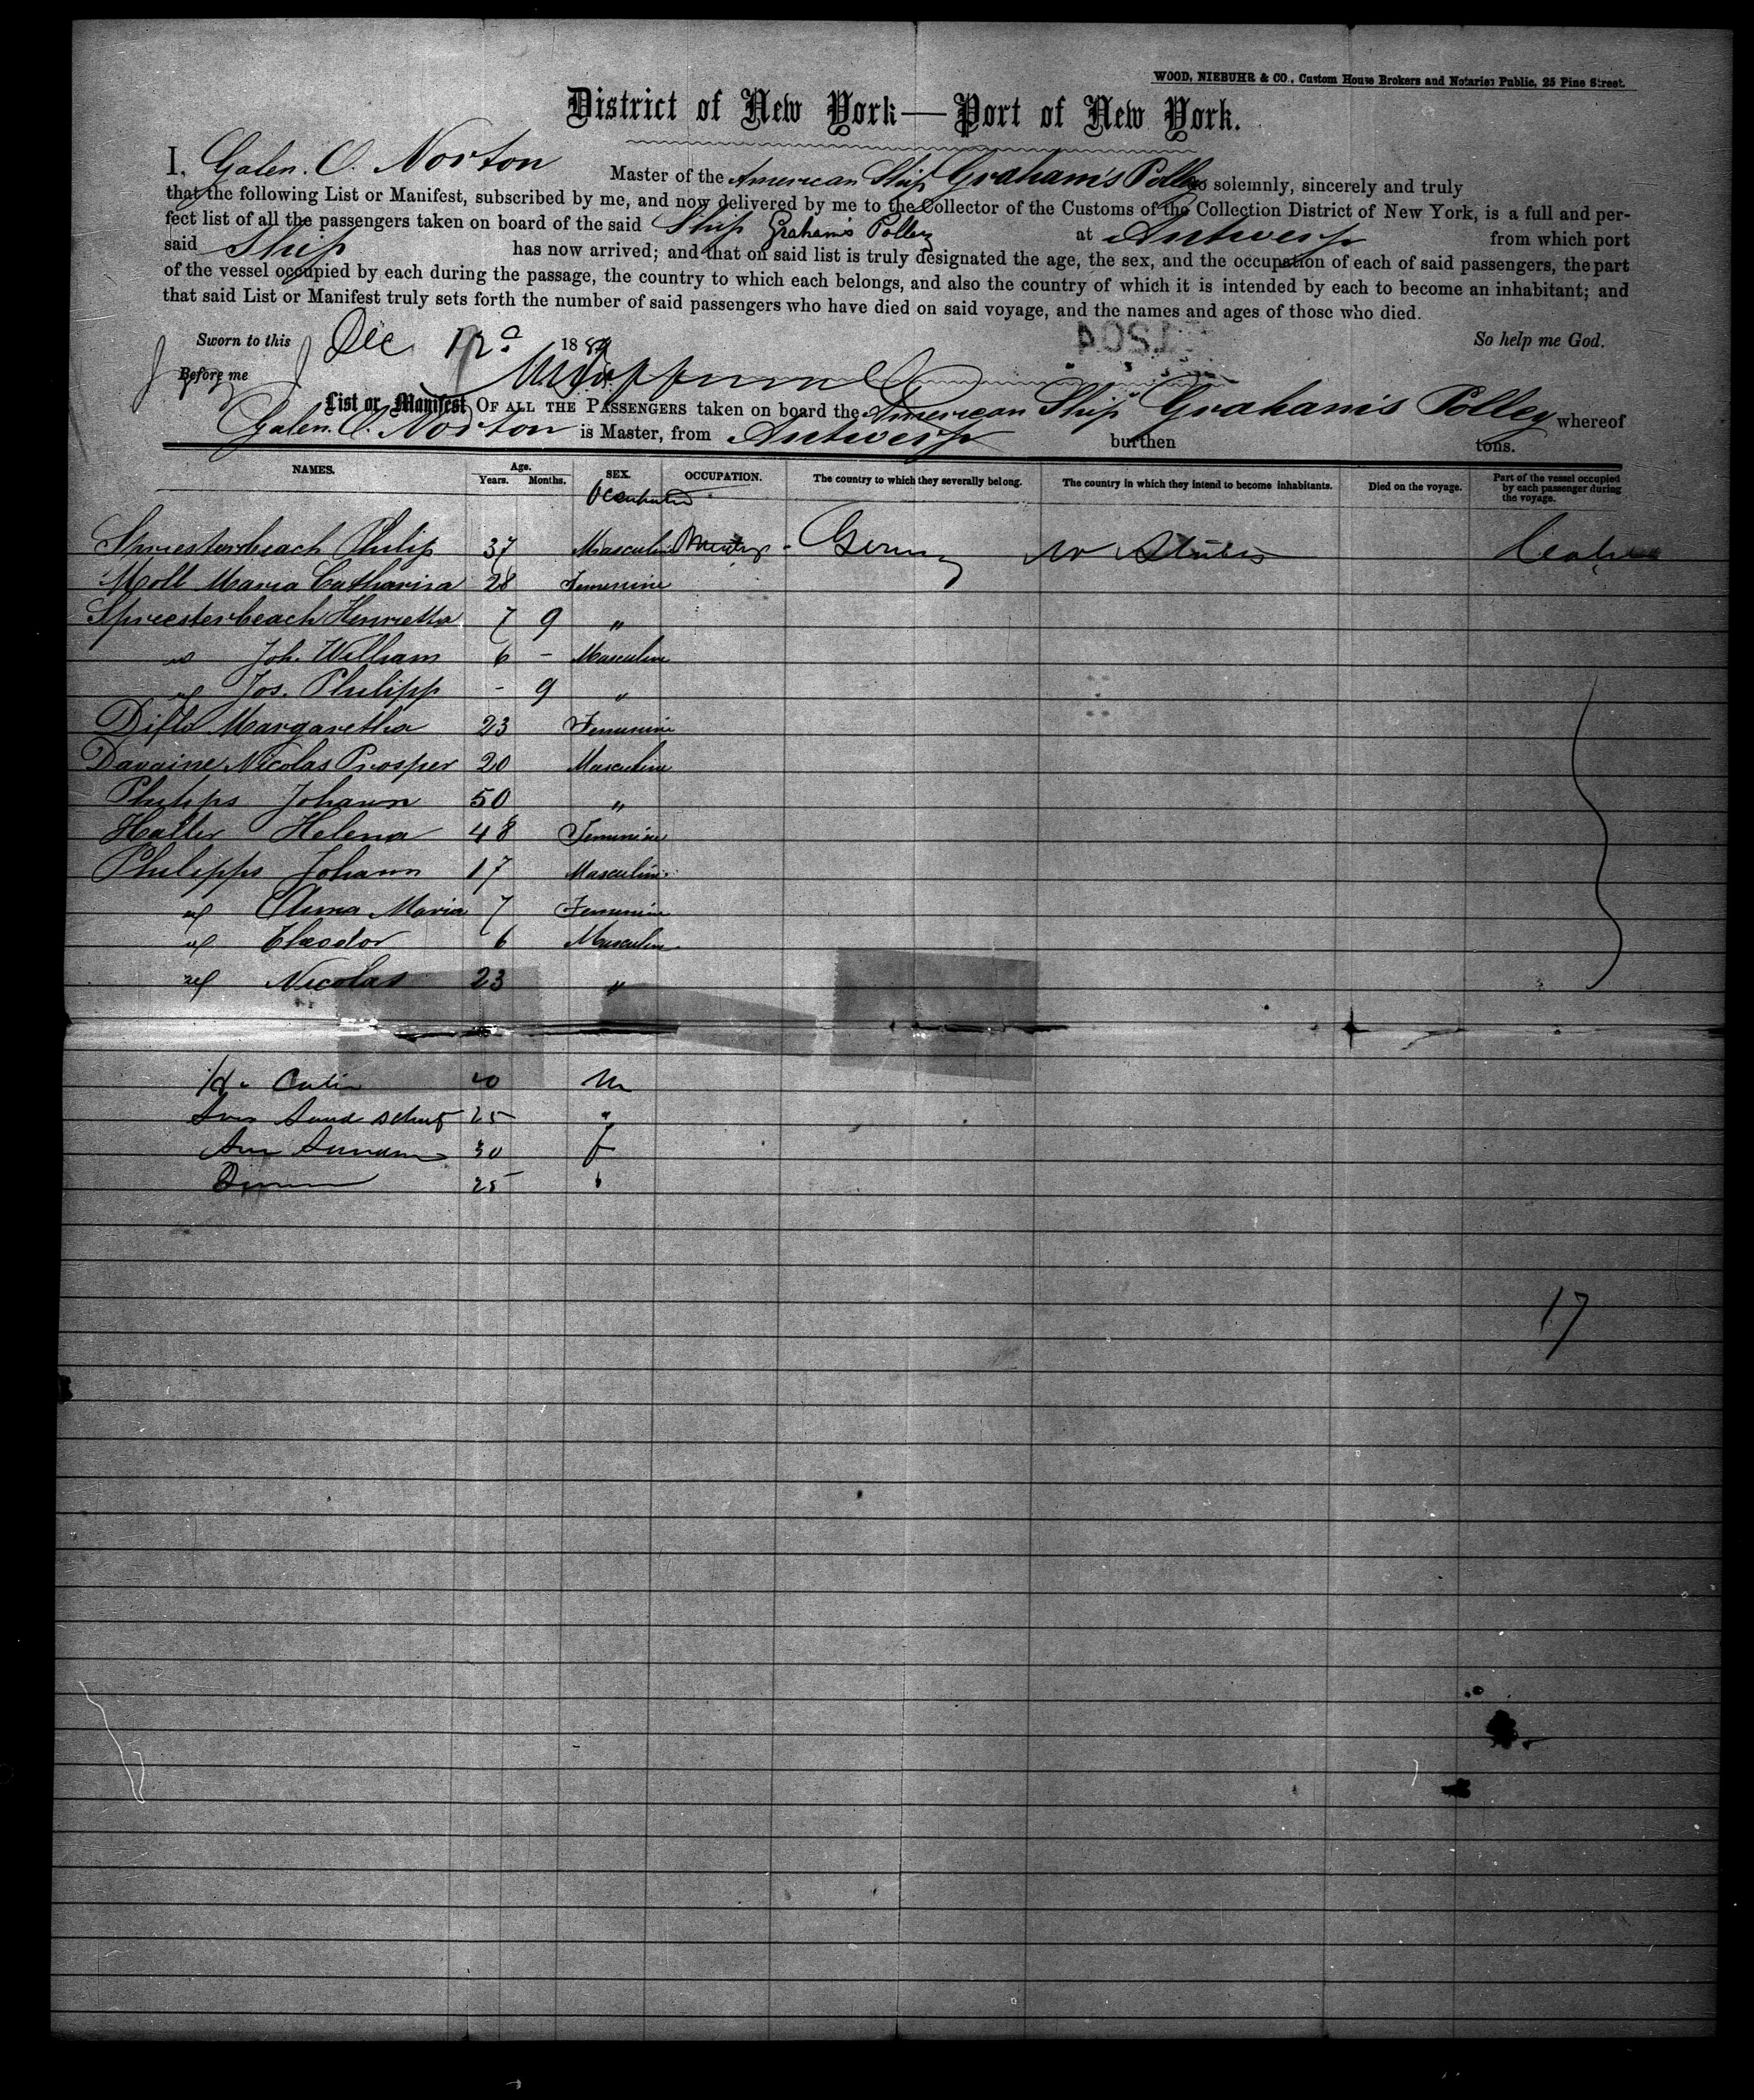 WOOD, NIEBUHR & CO., Custom House Brokers and Notaries Public, 25 Pine Street.
District of New York—Port of New York.
I, Galen. O. Norton Master of the American Ship Graham's Polley do solemnly, sincerely and truly
that the following List or Manifest, subscribed by me, and now delivered by me to the Collector of the Customs of the Collection District of New York, is a full and per-
fect list of all the passengers taken on board of the said Ship Graham's Polley at Antwerp from which port
said Ship has now arrived; and that on said list is truly designated the age, the sex, and the occupation of each of said passengers, the part
of the vessel occupied by each during the passage, the country to which each belongs, and also the country of which it is intended by each to become an inhabitant; and
that said List or Manifest truly sets forth the number of said passengers who have died on said voyage, and the names and ages of those who died.
Sworn to this Dec 12 18 So help me God.
Before me
List or Manifest OF ALL THE PASSENGERS taken on board the American Ship Graham's Polley whereof
Galen. O. Norton is Master, from Antwerp burthen tons.
NAMES. Age. Years. Months. SEX. OCCUPATION. The country to which they severally belong. The country in which they intend to become inhabitants. Died on the voyage. Part of the vessel occupied by each passenger during the voyage.
Spriesterbeach Philip 37 Masculine Germy
Moll Maria Catharina 28 Feminine
Spriesterbeach Henrietta 7 9 "
Joh. William 6 - Masculine
Jos. Philipp - 9 "
Margaretha 23 Feminine
Davaine Nicolas Prosper 20 Masculine
Philips Johann 50 "
Halter Helena 48 Feminine
Philipps Johann 17 Masculine
Anna Maria 7 Feminin
Theodor 6 Masculin
Nicolas 23 "
20 M
25 "
30 f
25 "
17